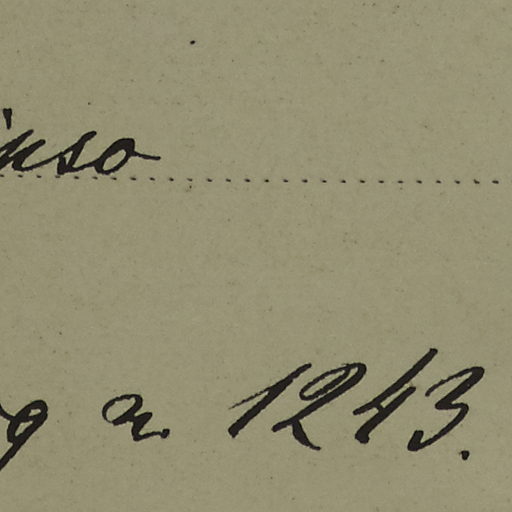 inso
g n. 1243.